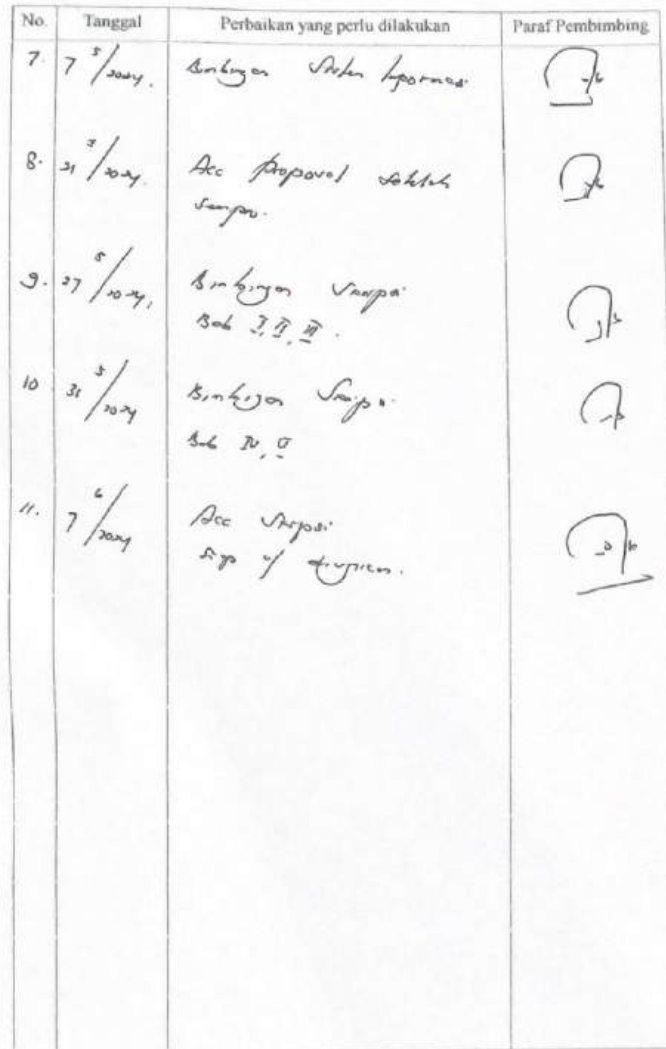 No. Tanggal Perbaikan yang perlu dilakukan Paraf Pembimbing
7. 7 5/2024. Bimbingan
8. 21 /2024. Acc proposal setelah
sempro.
9. 27 5/2024, Bimbingan Skripsi
Bab I, II, III.
10 31 5/2024 Bimbingan Skripsi
Bab IV, V
11. 7 6/2024 Acc Skripsi
Siap diujikan.